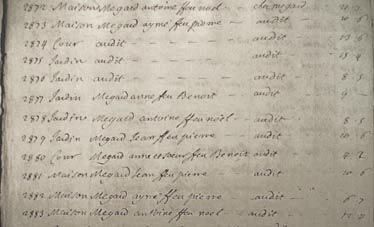 2872 Maison, Megard antoine ffeu noel - chez megard
2873 Maison Megard aymé ffeu pierre - audit
2874 Cour audit - audit
2875 Jardin audit - audit
2876 Jardin audit - audit
2877 Jardin Megard anne feu Benoit - audit
2878 Jardin Megard antoine ffeu noël - audit
2879 Jardin Megard Jean ffeu pierre - audit
2880 Cour Megard anne feu Benoit audit
2881 Maison Megard Jean feu pierre - audit
2882 Maison Megard aymé ffeu pierre - audit
2883 Maison Megard antoine ffeu noel - audit